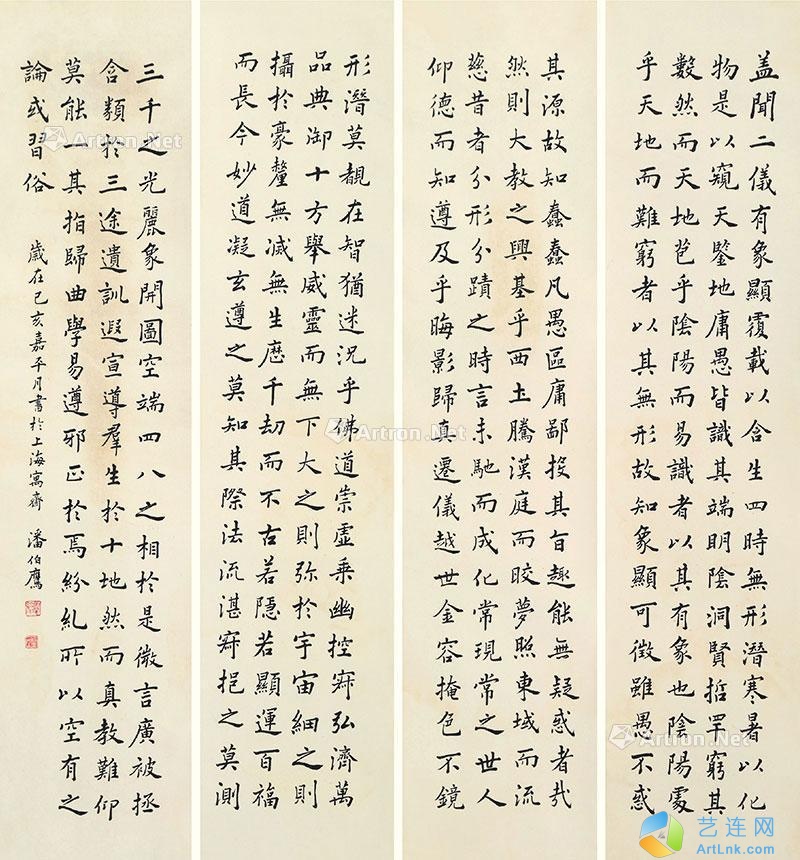 盖聞二儀有象顯覆載以含生四時無形潛寒暑以化
物是以窺天鑒地庸愚皆識其端明陰洞陽賢哲罕窮其
數然而天地苞乎陰陽而易識者以其有象也陰陽處
乎天地而難窮者以其無形故知象顯可徵雖愚不惑
其源故知蠢蠢凡愚區庸鄙投其旨趣能無疑惑者哉
然則大教之興基乎西土騰漢庭而皎夢照東域而流
慈昔者分形分蹟之時言未馳而成化常現常之世人
仰德而知遵及乎晦影歸真遷儀越世金容掩色不鏡
形潛莫覩在智猶迷況乎佛道崇虛乘幽控寂弘濟萬
品典御十方舉威靈而無下大之則弥於宇宙細之則
攝於豪釐無滅無生歷千劫而不古若隱若顯運百福
而長今妙道凝玄遵之莫知其際法流湛寂挹之莫測
三千之光麗象開圖空端四八之相於是微言廣被拯
含類於三途遺訓遐宣導羣生於十地然而真教難仰
莫能一其指歸曲學易遵邪正於焉紛糺所以空有之
論或習俗
歲在己亥嘉平月書於上海寓齋 潘伯鷹
Artron.Net
Artron.Net
Artron.Net
Artron.Net
艺连网
ArtLnk.com